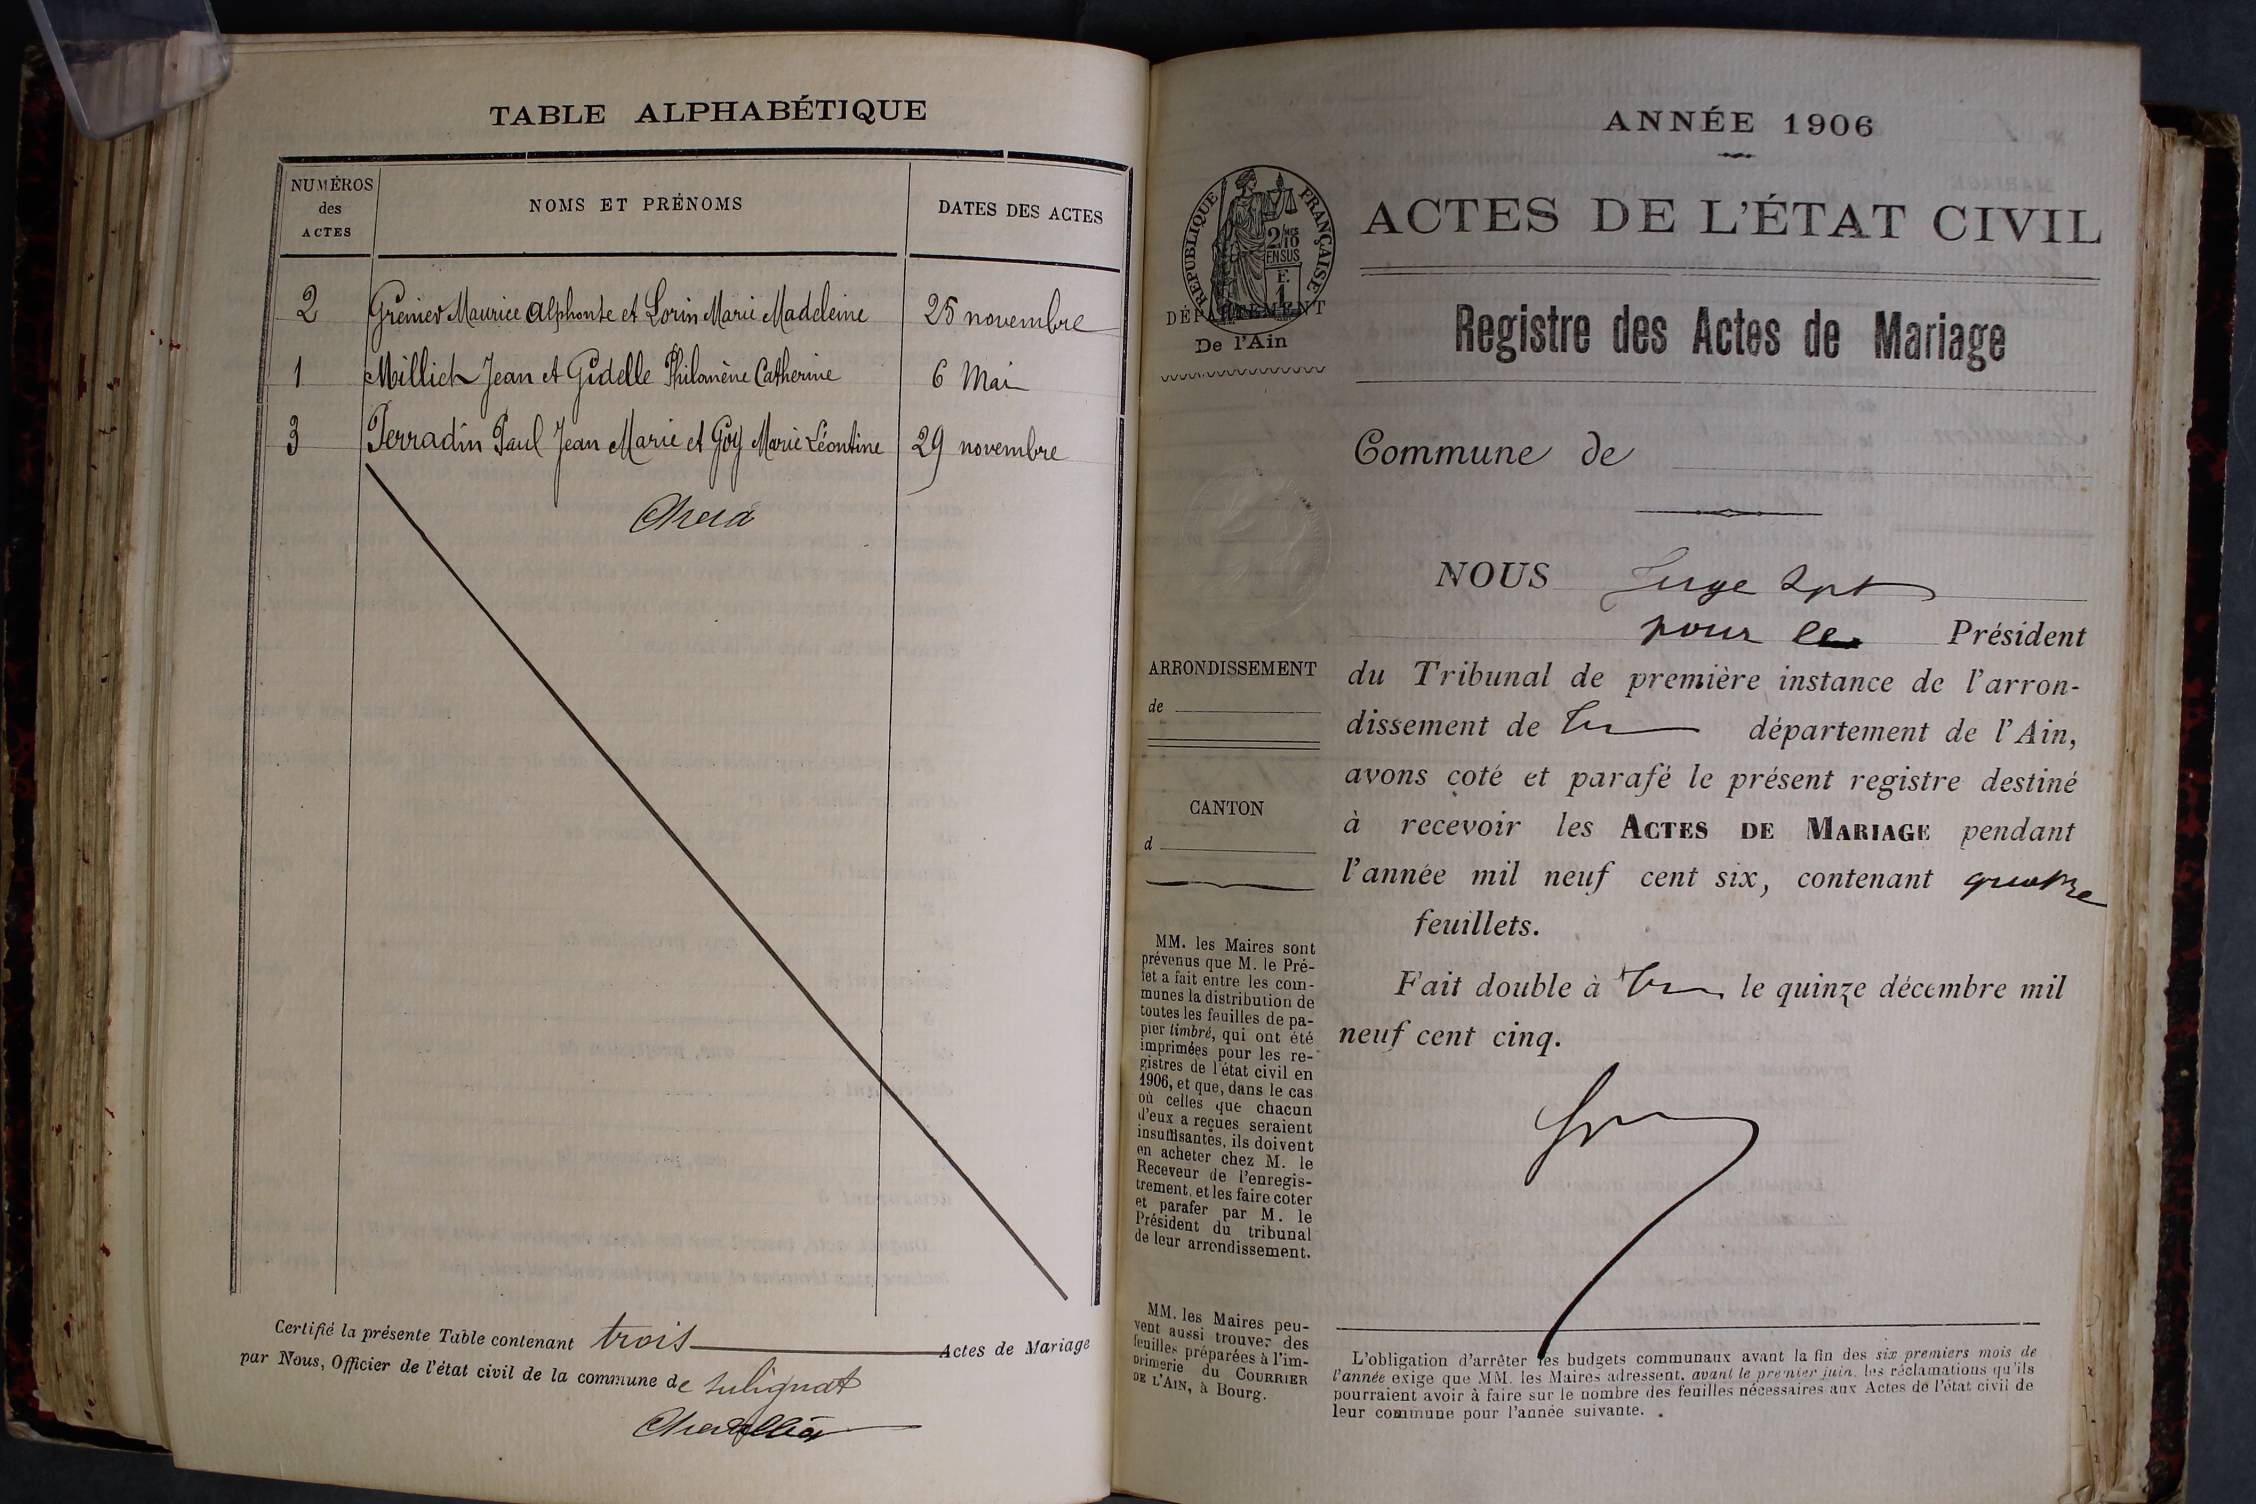 TABLE ALPHABÉTIQUE
NUMÉROS
des
ACTES
NOMS ET PRÉNOMS
DATES DES ACTES
2 Grenier Maurice Alphonse et Lorin Marie Madeleine 25 novembre
1 Millich Jean et Gidelle Philomène Catherine 6 Mai
3 Perradin Paul Jean Marie et Goy Marie Léontine 29 novembre
Certifié la présente Table contenant trois Actes de Mariage
par Nous, Officier de l'état civil de la commune de Sulignat
ANNÉE 1906
ACTES DE L'ÉTAT CIVIL
RÉPUBLIQUE FRANÇAISE
2/10 MES
EN SUS
F.
1
DÉPARTEMENT
De l'Ain
Registre des Actes de Mariage
Commune de
NOUS Juge Spt
pour le Président
du Tribunal de première instance de l'arron-
dissement de département de l'Ain,
avons coté et parafé le présent registre destiné
à recevoir les ACTES DE MARIAGE pendant
l'année mil neuf cent six, contenant quatre
feuillets.
Fait double à le quinze décembre mil
neuf cent cinq.
ARRONDISSEMENT
de
CANTON
d
MM. les Maires sont
prévenus que M. le Pré-
fet a fait entre les com-
munes la distribution de
toutes les feuilles de pa-
pier timbré, qui ont été
imprimées pour les re-
gistres de l'état civil en
1906, et que, dans le cas
où celles que chacun
d'eux a reçues seraient
insuffisantes, ils doivent
en acheter chez M. le
Receveur de l'enregis-
trement, et les faire coter
et parafer par M. le
Président du tribunal
de leur arrondissement.
MM. les Maires peu-
vent aussi trouver des
feuilles préparées à l'im-
primerie du COURRIER
DE L'AIN, à Bourg.
L'obligation d'arrêter les budgets communaux avant la fin des six premiers mois de
l'année exige que MM. les Maires adressent, avant le premier juin, les réclamations qu'ils
pourraient avoir à faire sur le nombre des feuilles nécessaires aux Actes de l'état civil de
leur commune pour l'année suivante.